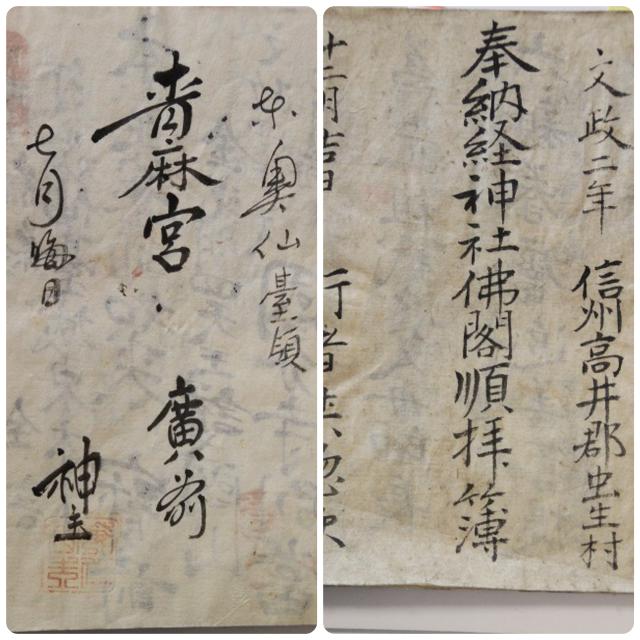 東奥仙臺領
青麻宮 廣前
七月晦日
神主
文政二年 信州高井郡虫生村
奉納経神社佛閣順拝簿
十二月吉日 行者